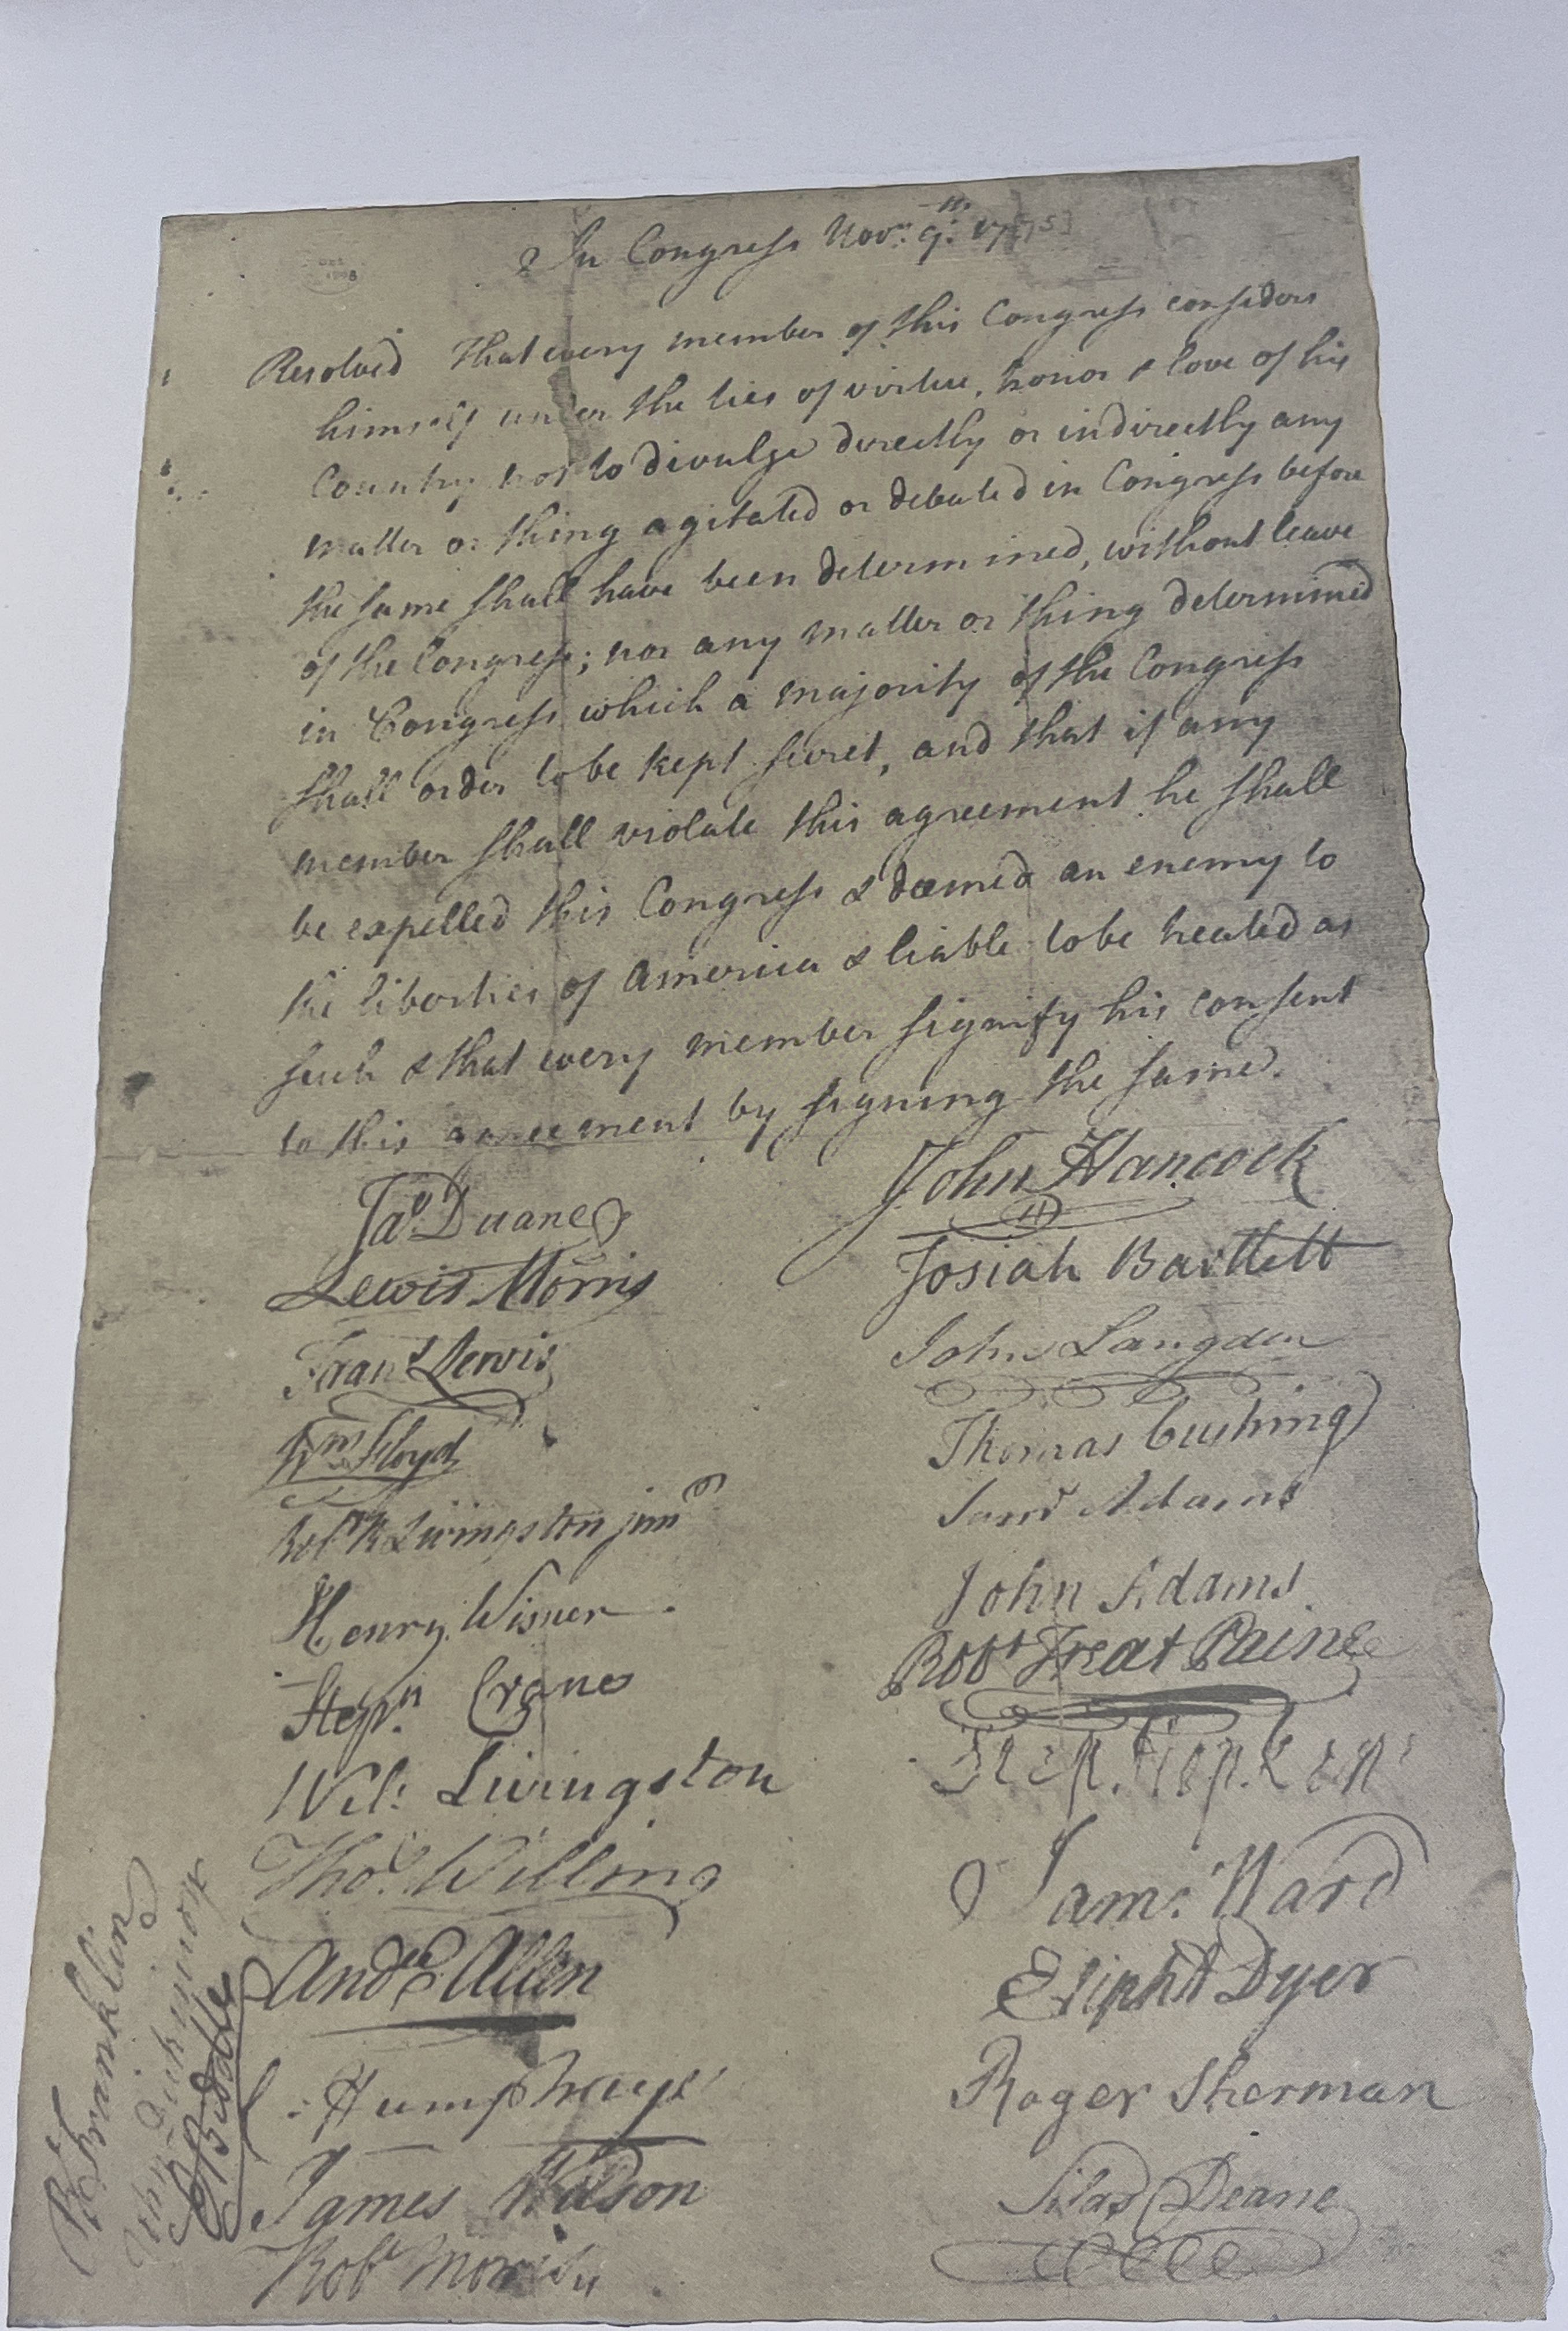 In Congress Novr. 9th. 17[75]
Resolved That every member of this Congress considers
himself under the ties of virtue, honor & love of his
Country not to divulge directly or indirectly any
matter or thing agitated or debated in Congress before
the same shall have been determined, without leave
of the Congress; nor any matter or thing determined
in Congress which a majority of the Congress
shall order to be kept secret, and that if any
member shall violate this agreement he shall
be expelled this Congress & deemed an enemy to
the liberties of America & liable to be treated as
such & that every member signify his consent
to this agreement by signing the same.
Jas. Duane
Lewis Morris
Frans Lewis
Wm Floyd
Robt R Livingston junr
Henry Wisner
Stepn. Crane
Wil: Livingston
Thos. Willing
Andw Allen
C: Humphreys
James Wilson
Robt Morris
John Hancock
Josiah Bartlett
John Langdon
Thomas Cushing
Saml Adams
John Adams
Robt Treat Paine
Step. Hopkins
Sam: Ward
Elipht Dyer
Roger Sherman
Silas Deane
B Franklin
John Dickinson
Biddle